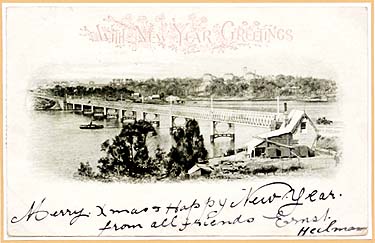 With New Year Greetings
Merry Xmas & Happy New Year.
from all friends Ernst
Heilman